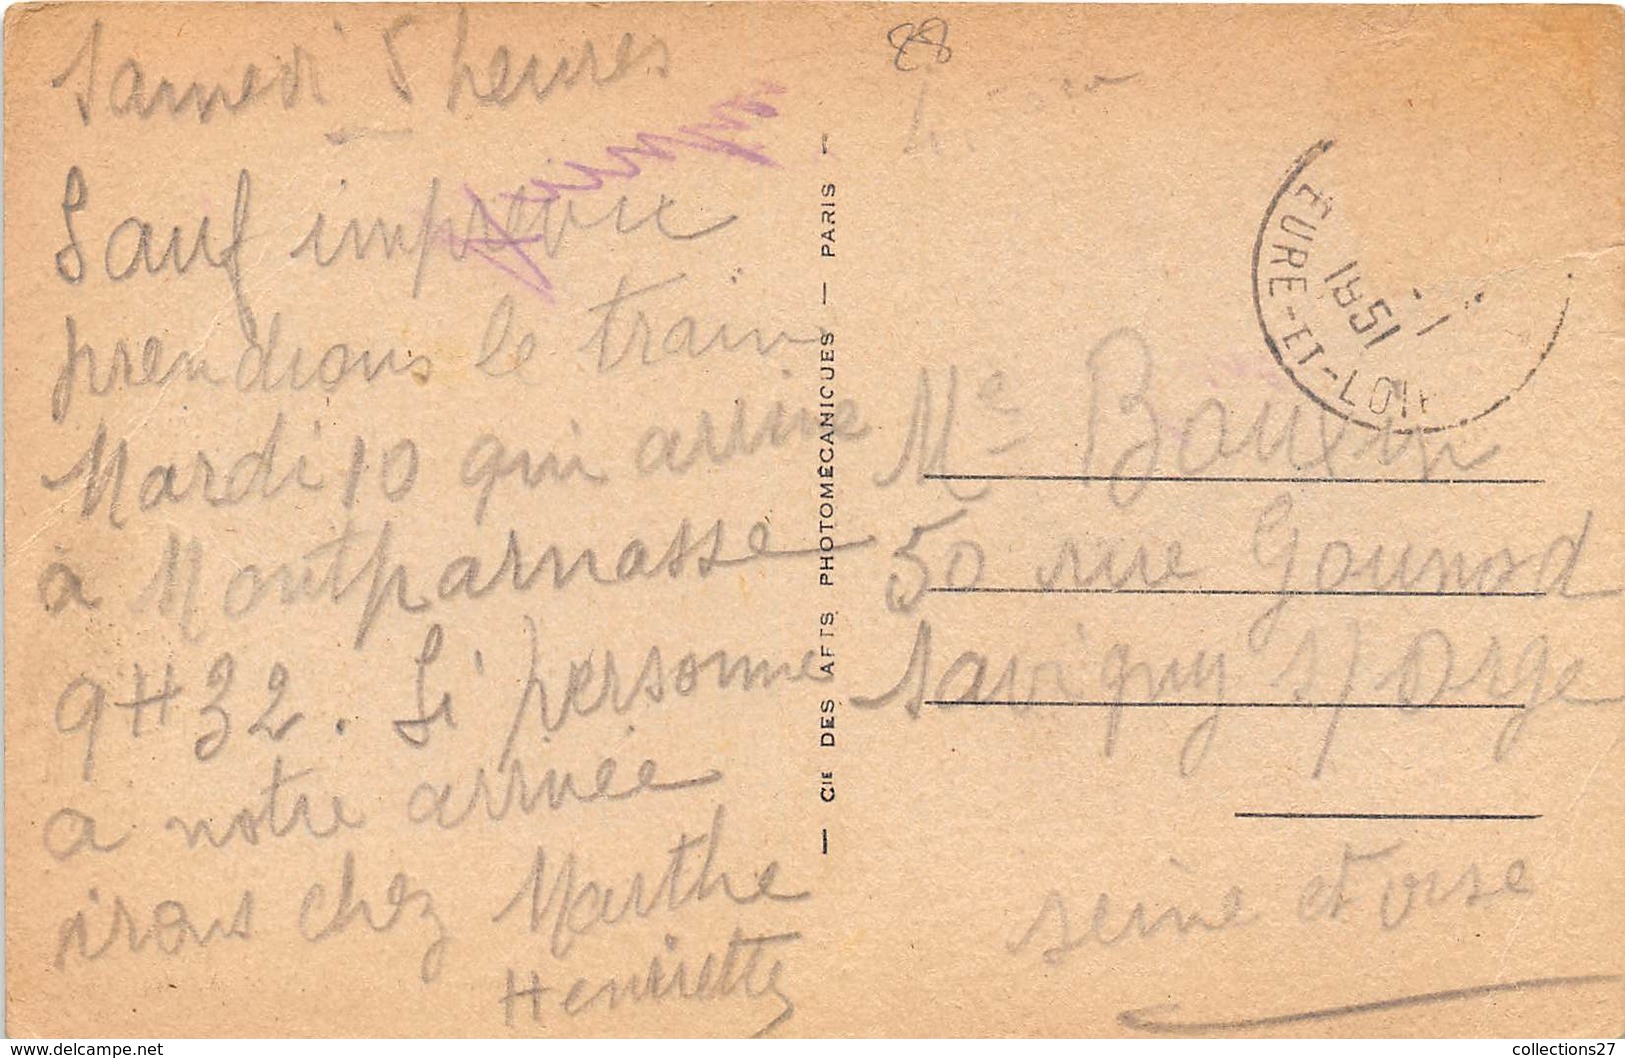 Samedi 5 heures
Sauf imprévu
prendrons le train
Mardi 10 qui arrive
à Montparnasse
9H32. Si personne
a notre arrivée
irons chez Marthe
Henriette
CIE DES ARTS PHOTOMÉCANIQUES — PARIS —
88
EURE-ET-LOIR
Me Boulin
50 rue Gounod
Savigny s/Orge
seine et oise
collections27